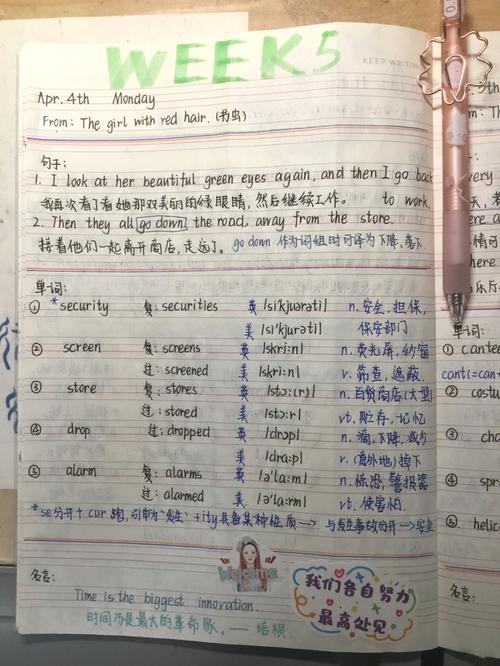 WEEK5
KEEP WRITING
Apr. 4th Monday
From: The girl with red hair. (书虫)
句子:
1. I look at her beautiful green eyes again, and then I go back
我再次看了看她那双美丽的绿眼睛, 然后继续工作。 to work.
2. Then they all go down the road, away from the store.
接着他们一起离开商店, 走远了。 go down 作为词组时可译为下降、落下.
单词:
① *security 复: securities 英 /sɪ'kjʊərəti/ n. 安全, 担保,
美 /sɪ'kjʊrəti/ 保安部门
② screen 复: screens 英 /skri:n/ n. 荧光屏, 纱窗
过: screened 美 /skri:n/ v. 筛查, 遮蔽.
③ store 复: stores 英 /stɔ:(r)/ n. 百货商店(大型)
过: stored 美 /stɔ:r/ vt. 贮存, 记忆
④ drop 过: dropped 英 /drɒp/ n. 滴, 下降, 减少
美 /drɑ:p/ v. (意外地)掉下
⑤ alarm 复: alarms 英 /ə'lɑ:m/ n. 惊恐, 警报器
过: alarmed 美 /ə'lɑ:rm/ vt. 使害怕.
*se分开+cur跑, 引申为"发生"+ity具备某种性质→与发生事故分开→安全
名言:
Time is the biggest innovation.
时间乃是最大的革命家。 — 培根
我们各自努力
最高处见
very
单词:
① cantee
cant(=can+
② costu
③ cho
④ spr
⑤ helic
名言: